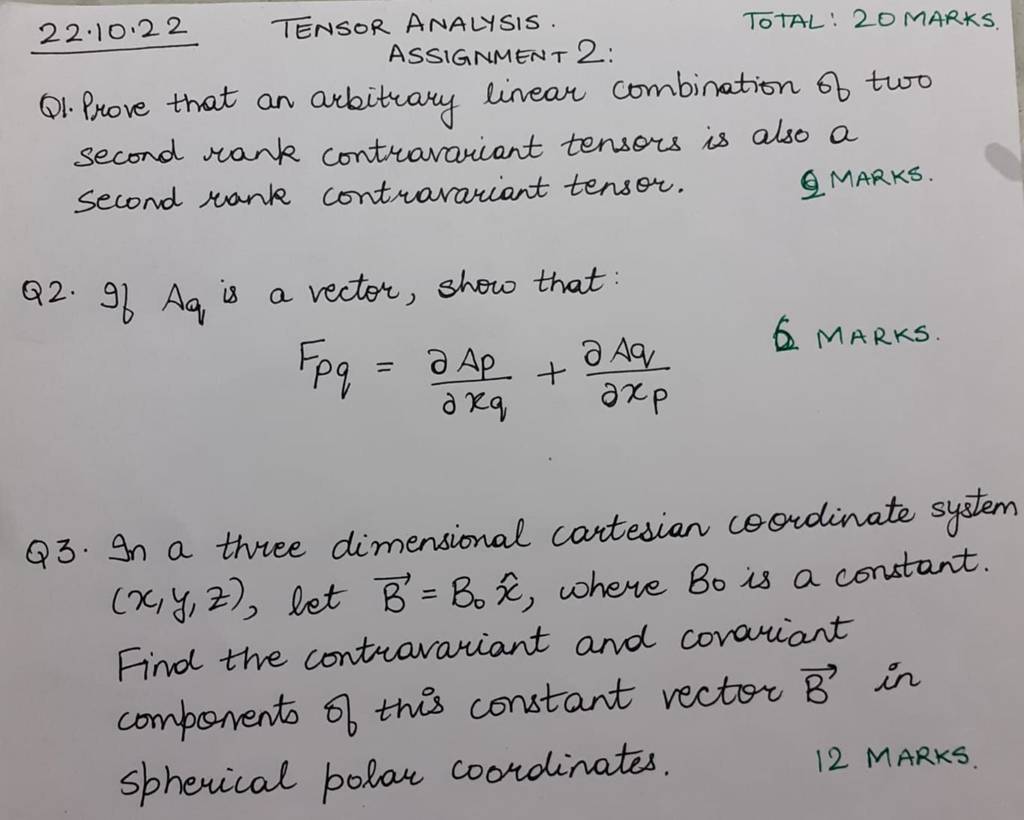 22.10.22 TENSOR ANALYSIS. TOTAL: 20 MARKS.
ASSIGNMENT 2:
Q1. Prove that an arbitrary linear combination of two
second rank contravariant tensors is also a
second rank contravariant tensor. MARKS.
Q2. If Aq is a vector, show that:
Fpq = ∂Ap/∂xq + ∂Aq/∂xp 6 MARKS.
Q3. In a three dimensional cartesian coordinate system
(x, y, z), let B⃗ = B₀ x̂, where B₀ is a constant.
Find the contravariant and covariant
components of this constant vector B⃗ in
spherical polar coordinates. 12 MARKS.